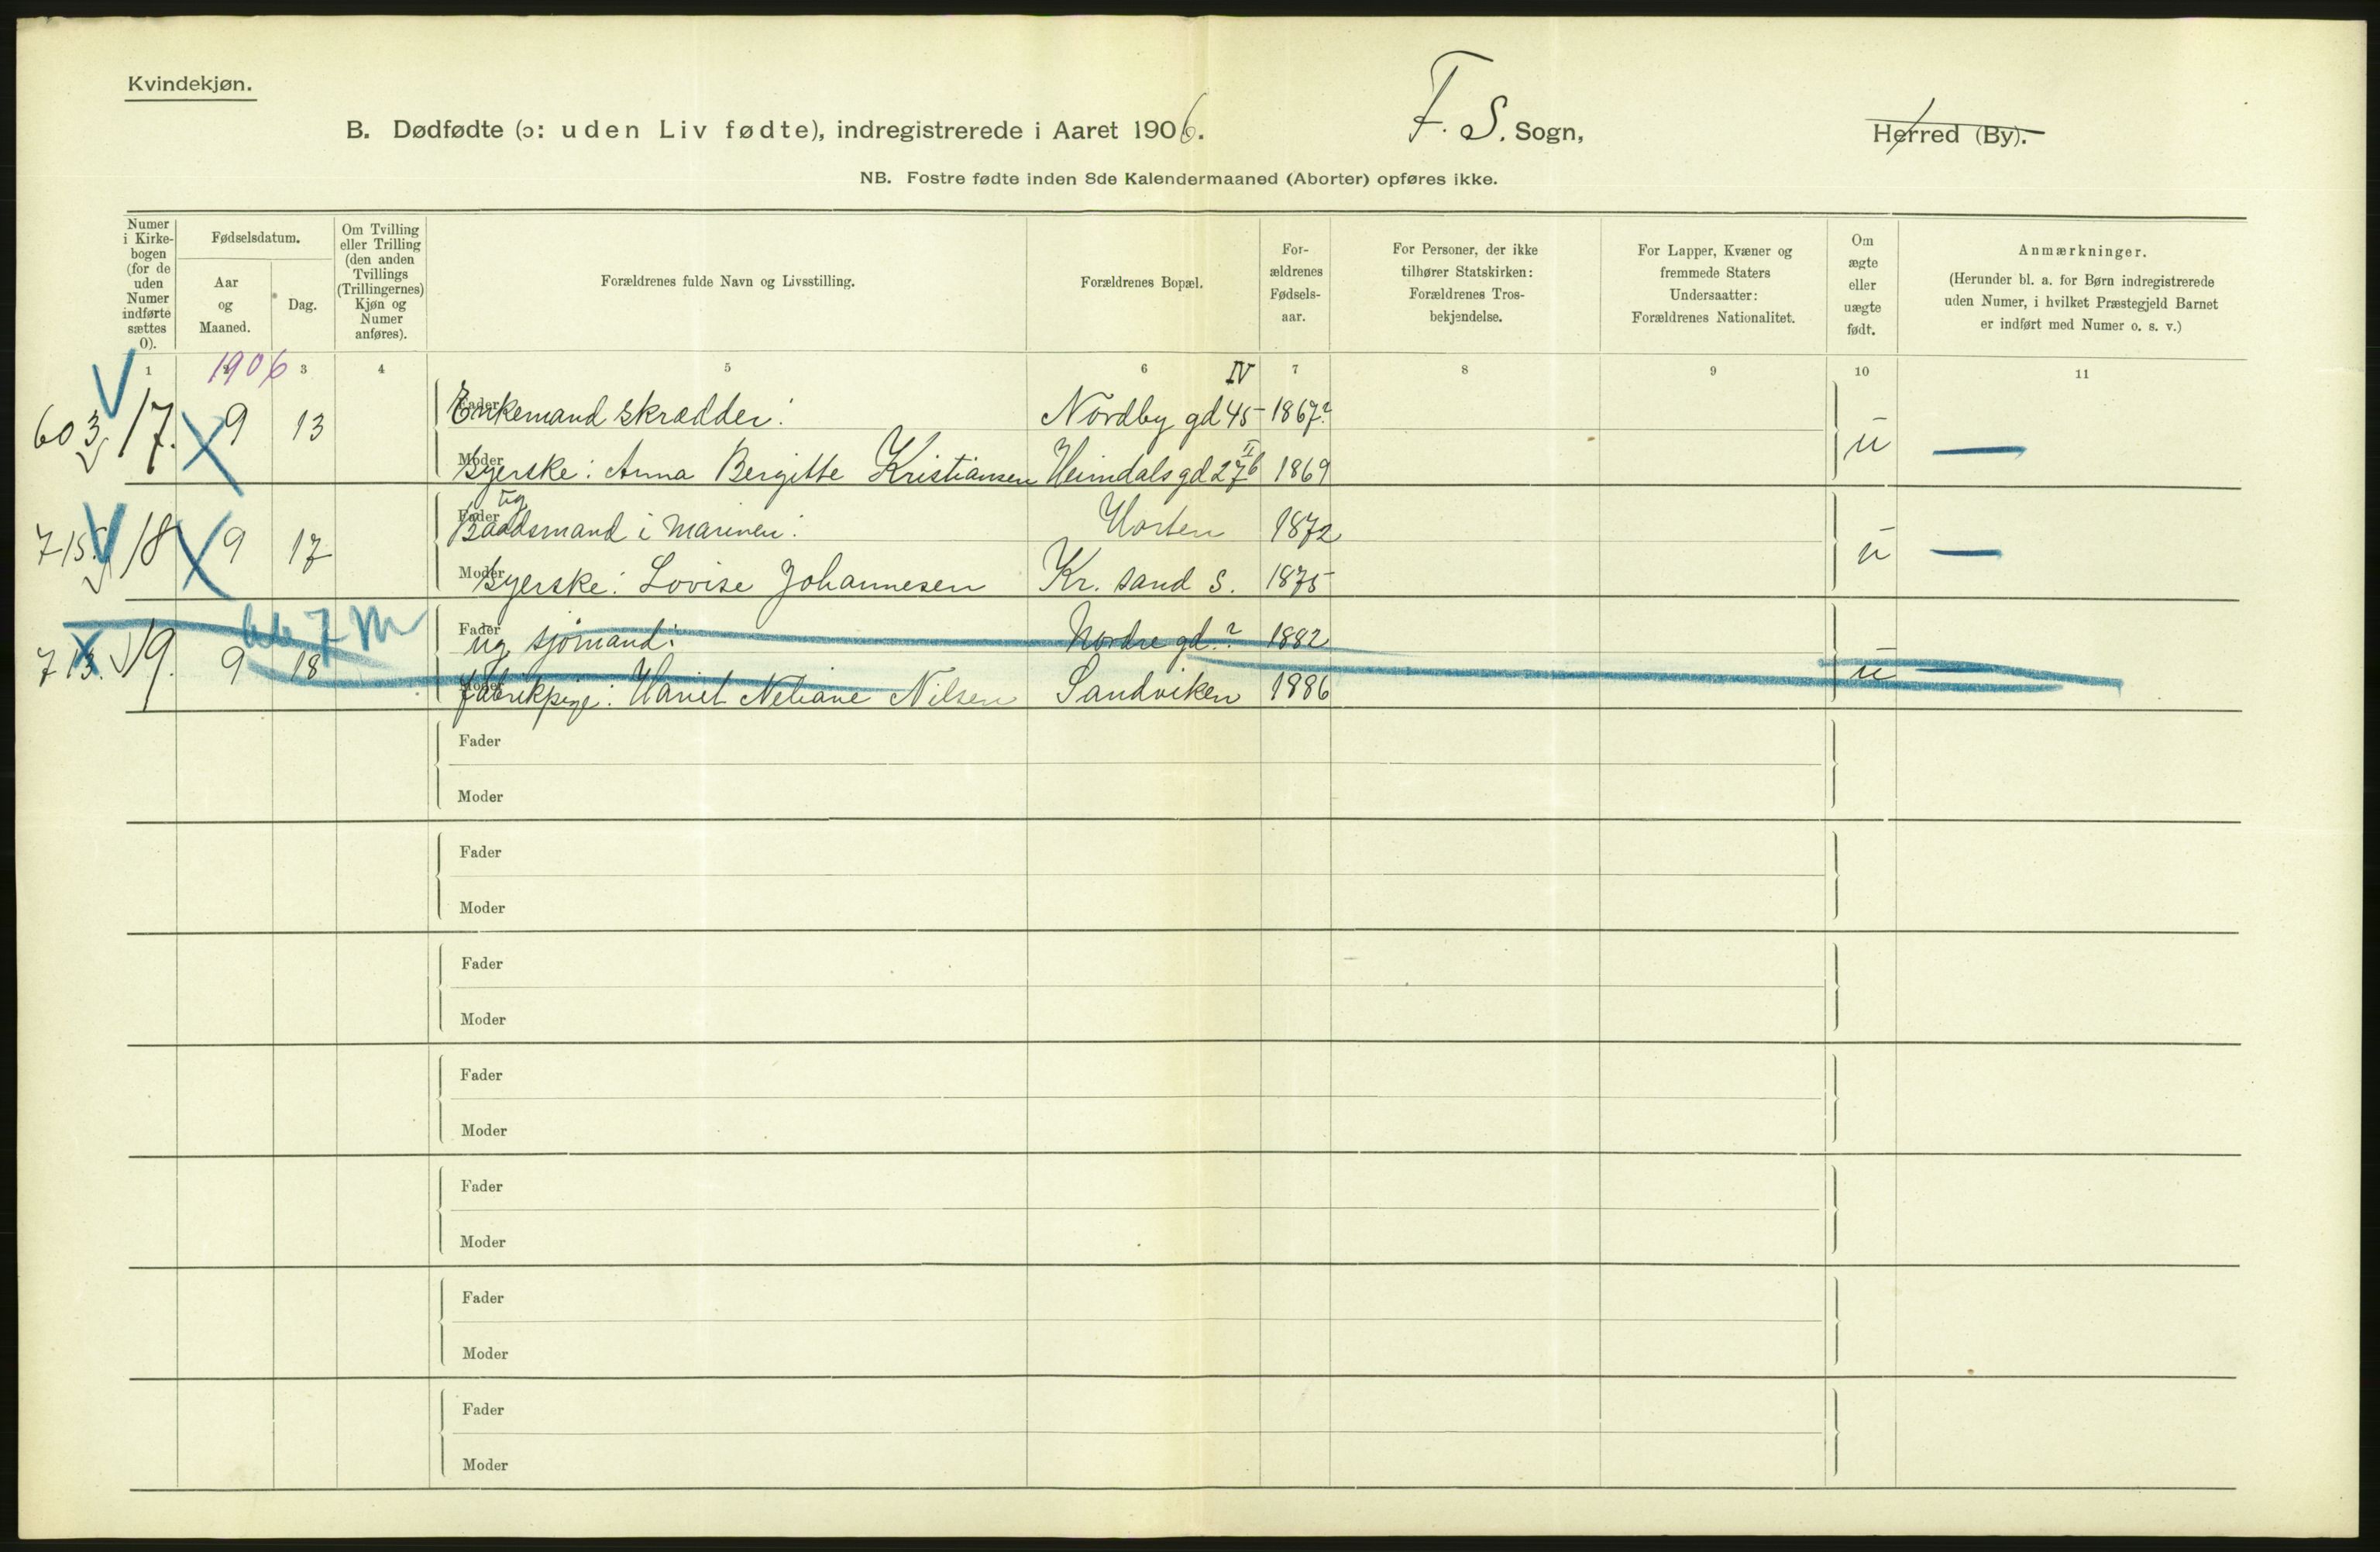 Kvindekjøn.
B. Dødfødte (ɔ: uden Liv fødte), indregistrerede i Aaret 1906. F. S. Sogn, Herred (By).
NB. Fostre fødte inden 8de Kalendermaaned (Aborter) opføres ikke.
Numer i Kirkebogen (for de uden Numer indførte sættes 0).
Fødselsdatum.
Aar og Maaned.
Dag.
Om Tvilling eller Trilling (den anden Tvillings (Trillingernes) Kjøn og Numer anføres).
Forældrenes fulde Navn og Livsstilling.
Forældrenes Bopæl.
Forældrenes Fødselsaar.
For Personer, der ikke tilhører Statskirken: Forældrenes Trosbekjendelse.
For Lapper, Kvæner og fremmede Staters Undersaatter: Forældrenes Nationalitet.
Om ægte eller uægte født.
Anmærkninger.
(Herunder bl. a. for Børn indregistrerede uden Numer, i hvilket Præstegjeld Barnet er indført med Numer o. s. v.)
1 2 3 4 5 6 7 8 9 10 11
1906
603. 17. 9 13 Fader Enkemand skrædder: Nordby gd 45 IV 1867? u —
Moder Syerske: Anna Bergitte Kristiansen Heimdals gd 27b II 1869
715. 18 9 17 Fader ug Baadsmand i Marinen: Horten 1872 u —
Moder Syerske: Lovise Johannesen Kr. sand S. 1875
713. 19. 9 18 Fader ug sjømand: Nordre gd. ? 1882 u —
667 M
Moder Fabrikpige: Nilsen Sandviken 1886
Fader
Moder
Fader
Moder
Fader
Moder
Fader
Moder
Fader
Moder
Fader
Moder
Fader
Moder